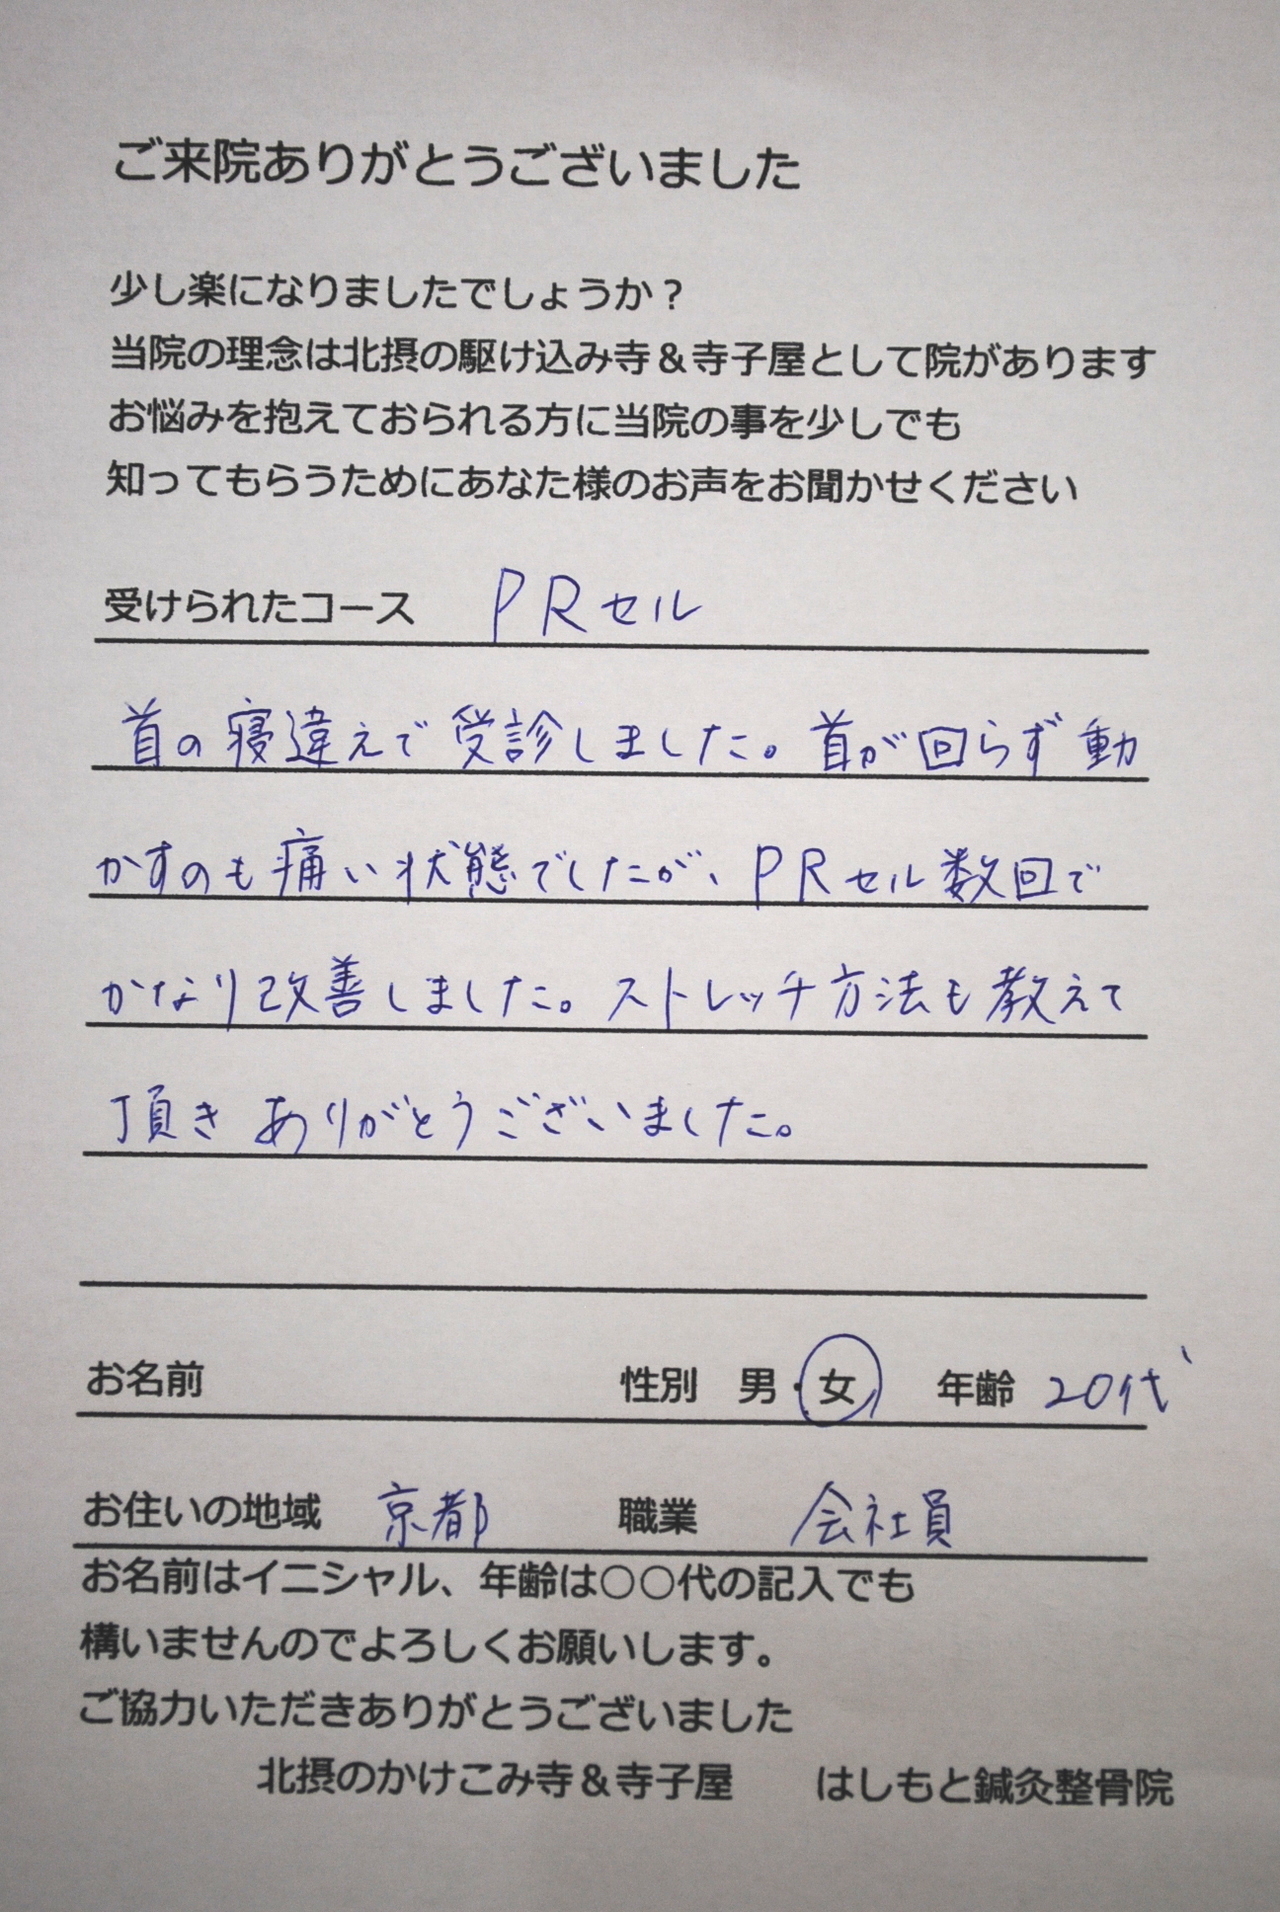 ご来院ありがとうございました
少し楽になりましたでしょうか？
当院の理念は北摂の駆け込み寺＆寺子屋として院があります
お悩みを抱えておられる方に当院の事を少しでも
知ってもらうためにあなた様のお声をお聞かせください
受けられたコース PRセル
首の寝違えで受診しました。首が回らず動
かすのも痛い状態でしたが、PRセル数回で
かなり改善しました。ストレッチ方法も教えて
頂き ありがとうございました。
お名前 性別 男・女 年齢 20代
お住いの地域 京都 職業 会社員
お名前はイニシャル、年齢は〇〇代の記入でも
構いませんのでよろしくお願いします。
ご協力いただきありがとうございました
北摂のかけこみ寺＆寺子屋 はしもと鍼灸整骨院